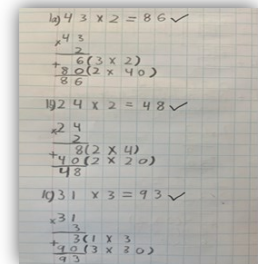 1a) 43 × 2 = 86 ✓
× 43
2
+ 6 (3 × 2)
80 (2 × 40)
86
1b) 24 × 2 = 48 ✓
× 24
2
+ 8 (2 × 4)
40 (2 × 20)
48
1c) 31 × 3 = 93 ✓
× 31
3
+ 3 (1 × 3
90 (3 × 30)
93